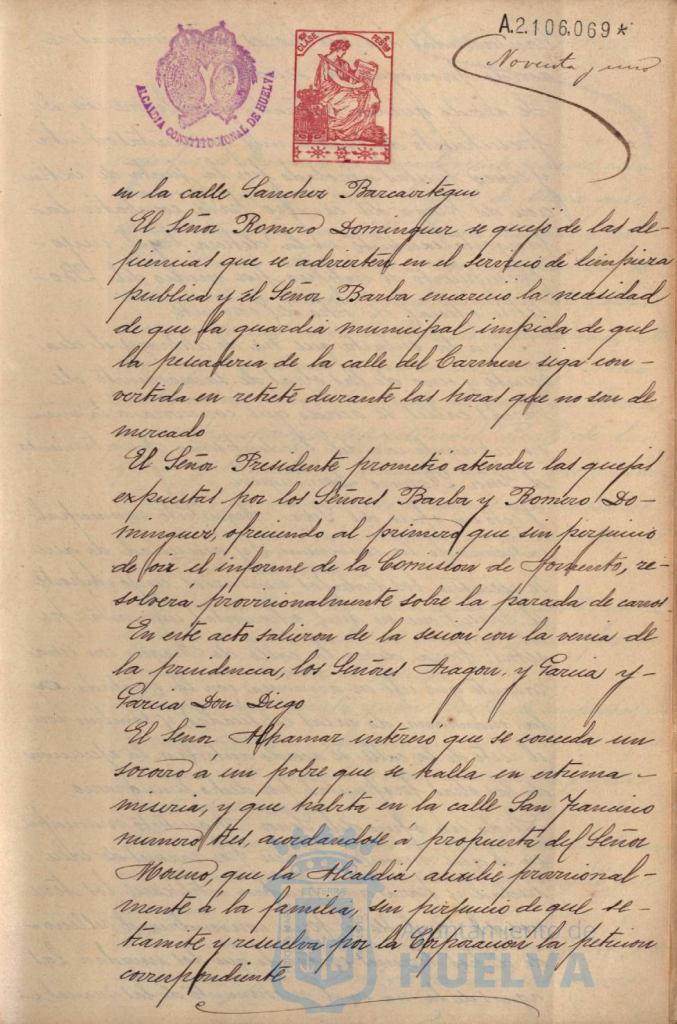 A.2.106,069*
Noventa y uno
ALCALDIA CONSTITUCIONAL DE HUELVA
CLASE
en la calle Sanchez Barcaiztegui
El Señor Romero Dominguez se quejó de las de-
ficiencias que se advierten en el servicio de limpieza
publica y el Señor Barba encareció la necesidad
de que la guardia municipal impida de que
la pescaderia de la calle del Carmen siga con-
vertida en retrete durante las horas que no son de
mercado
El Señor Presidente prometió atender las quejas
expuestas por los Señores Barba y Romero Do-
minguez, ofreciendo al primero que sin perjuicio
de oir el informe de la Comision de Fomento, re-
solverá provisionalmente sobre la parada de carros
En este acto salieron de la sesion con la venia de
la presidencia, los Señores Aragon, y Garcia y-
Garcia Don Diego
El Señor Alpamar interesó que se conceda un
socorro á un pobre que se halla en extrema-
miseria, y que habita en la calle San Francisco
numero tres, acordandose á propuesta del Señor
Moreno, que la Alcaldia auxilie provisional-
mente á la familia, sin perjuicio de que se-
tramite y resuelva por la Corporacion la peticion
correspondiente
Ayuntamiento de
HUELVA